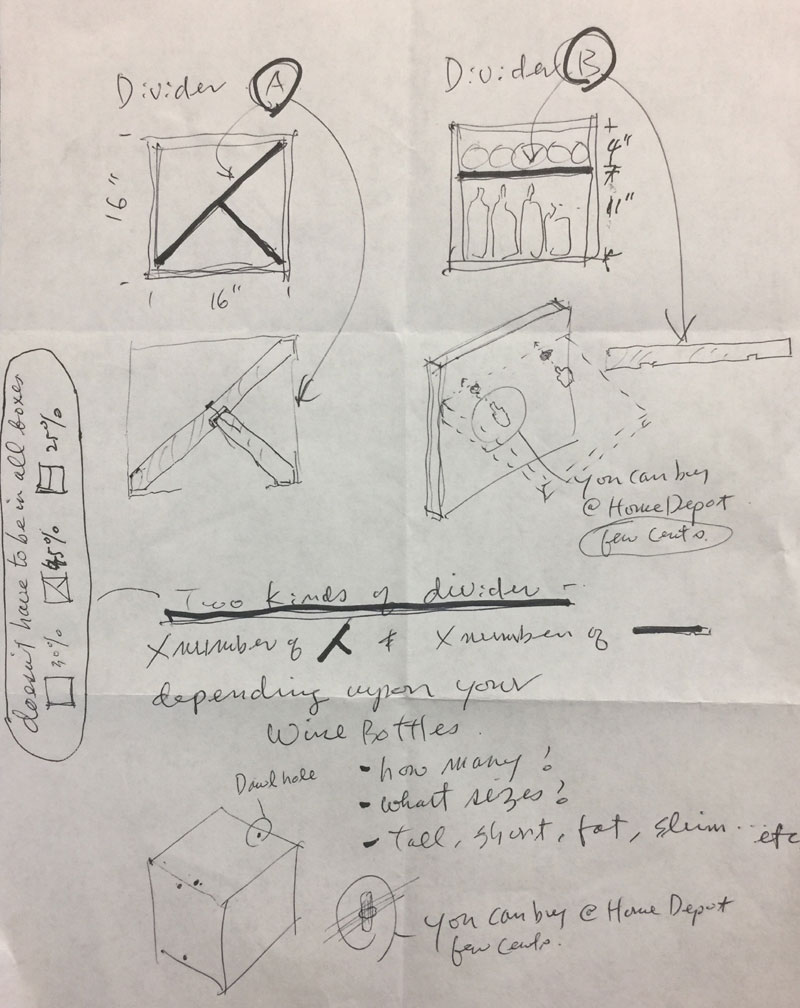 Divider A
Divider B
16"
16"
4"
11"
you can buy
@ Home Depot
few cents.
doesn't have to be in all boxes
30% 45% 25%
Two kinds of divider -
X number of & X number of
depending upon your
Wine Bottles.
- how many?
- what sizes?
- Tall, short, fat, slim... etc
Dowl hole
you can buy @ Home Depot
few cents.